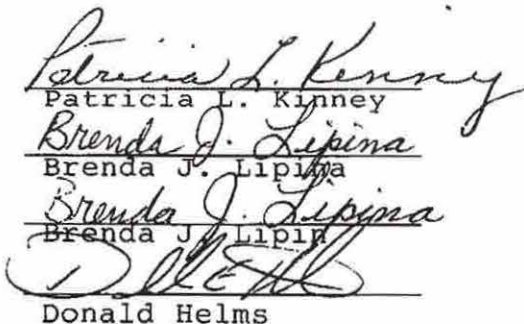 Patricia L. Kenney
Patricia L. Kinney
Brenda J. Lipina
Brenda J. Lipina
Brenda J. Lipina
Brenda J. Lipin
Donald Helms